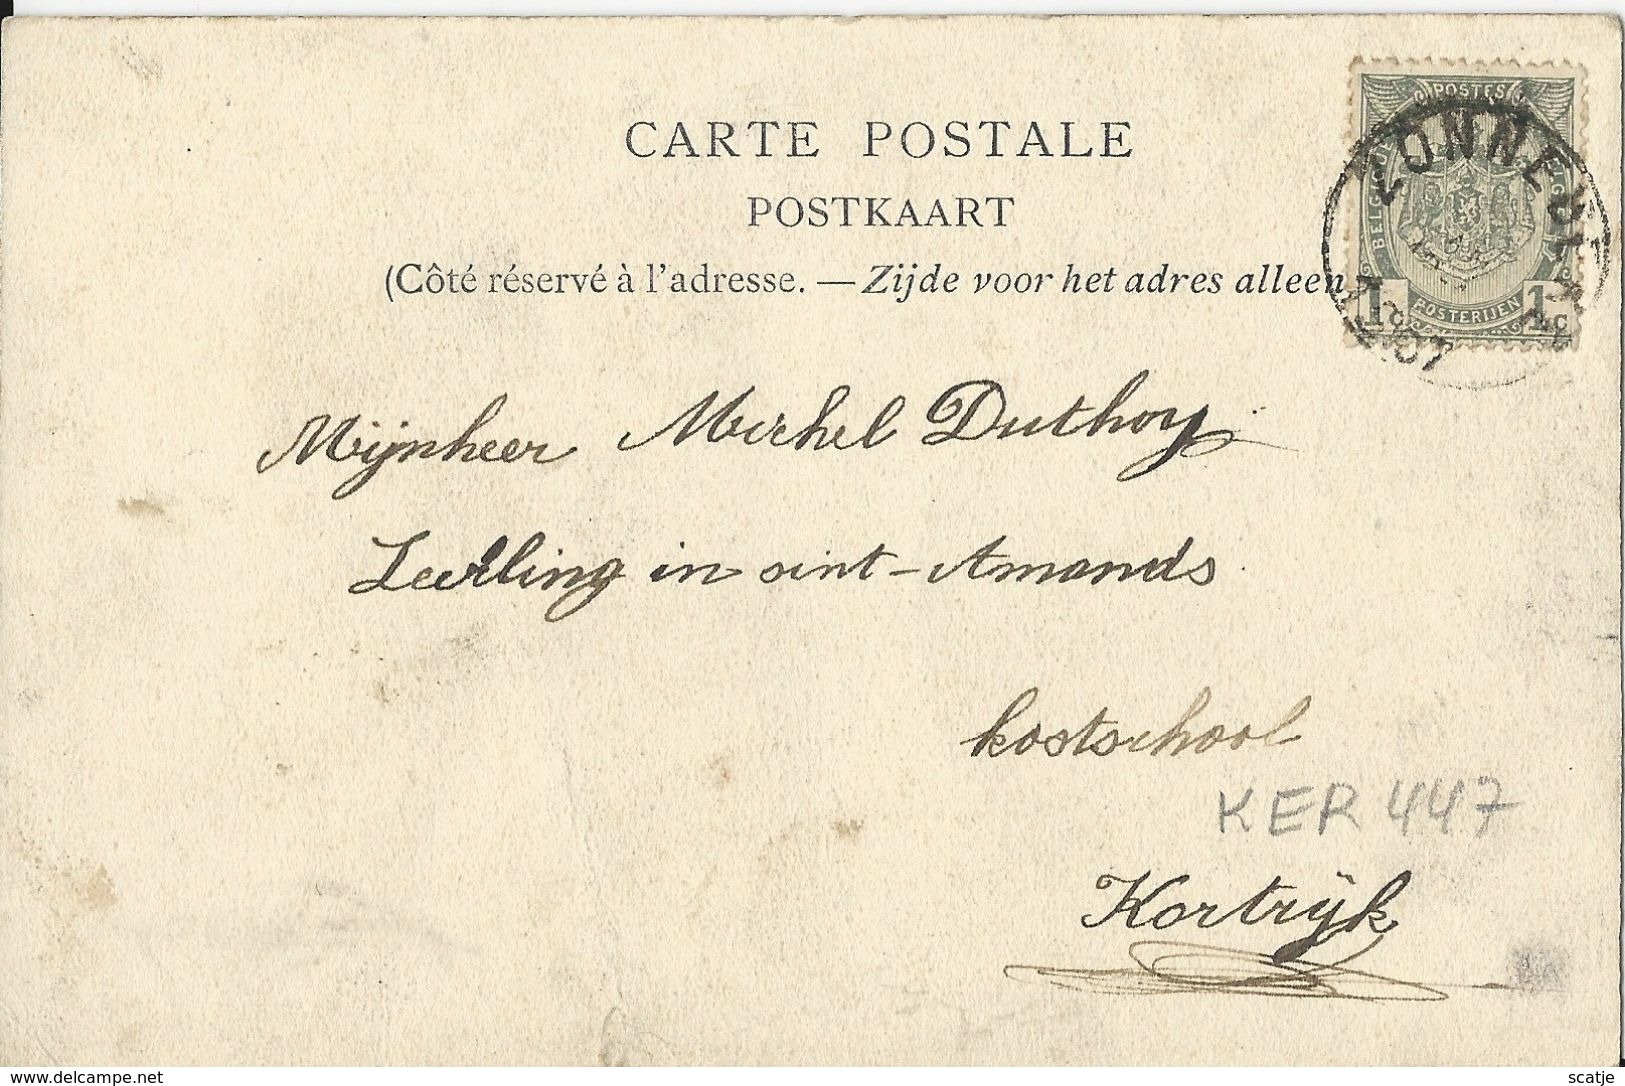 CARTE POSTALE
POSTKAART
(Côté réservé à l'adresse. — Zijde voor het adres alleen
POSTES
POSTERIJEN
1c 1c
ZONNEBEKE
Mijnheer Michel Duthoy
Leerling in sint-Amands
kostschool
KER 447
Kortrijk
www.delcampe.net
scatje